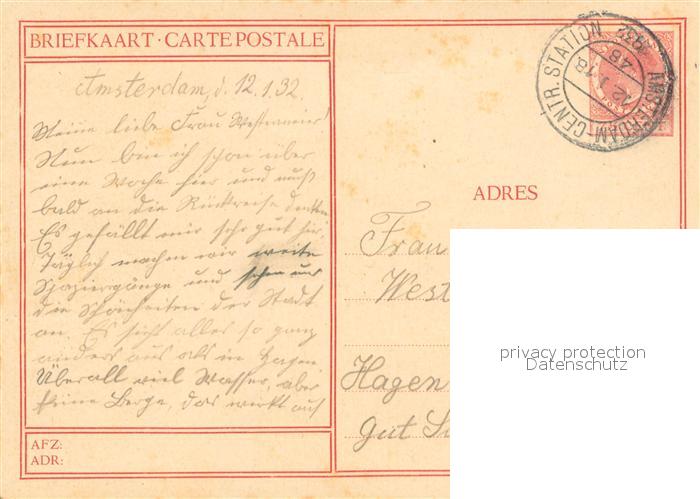 BRIEFKAART · CARTE POSTALE
Amsterdam, d. 12.1.32.
Meine liebe Frau Westermeier!
Nun bin ich schon über
eine Woche hier und muß
bald an die Rückreise denken
Es gefällt mir sehr gut hier.
Täglich machen wir weite
Spaziergänge und sehen uns
die Schönheiten der Stadt
an. Es sieht alles so ganz
anders aus als in Hagen.
Überall viel Wasser, aber
keine Berge, das wirkt auf
AFZ:
ADR:
AMSTERDAM CENTR. STATION
12 I 18
1932
ADRES
Frau
West
Hagen
Gut
privacy protection
Datenschutz